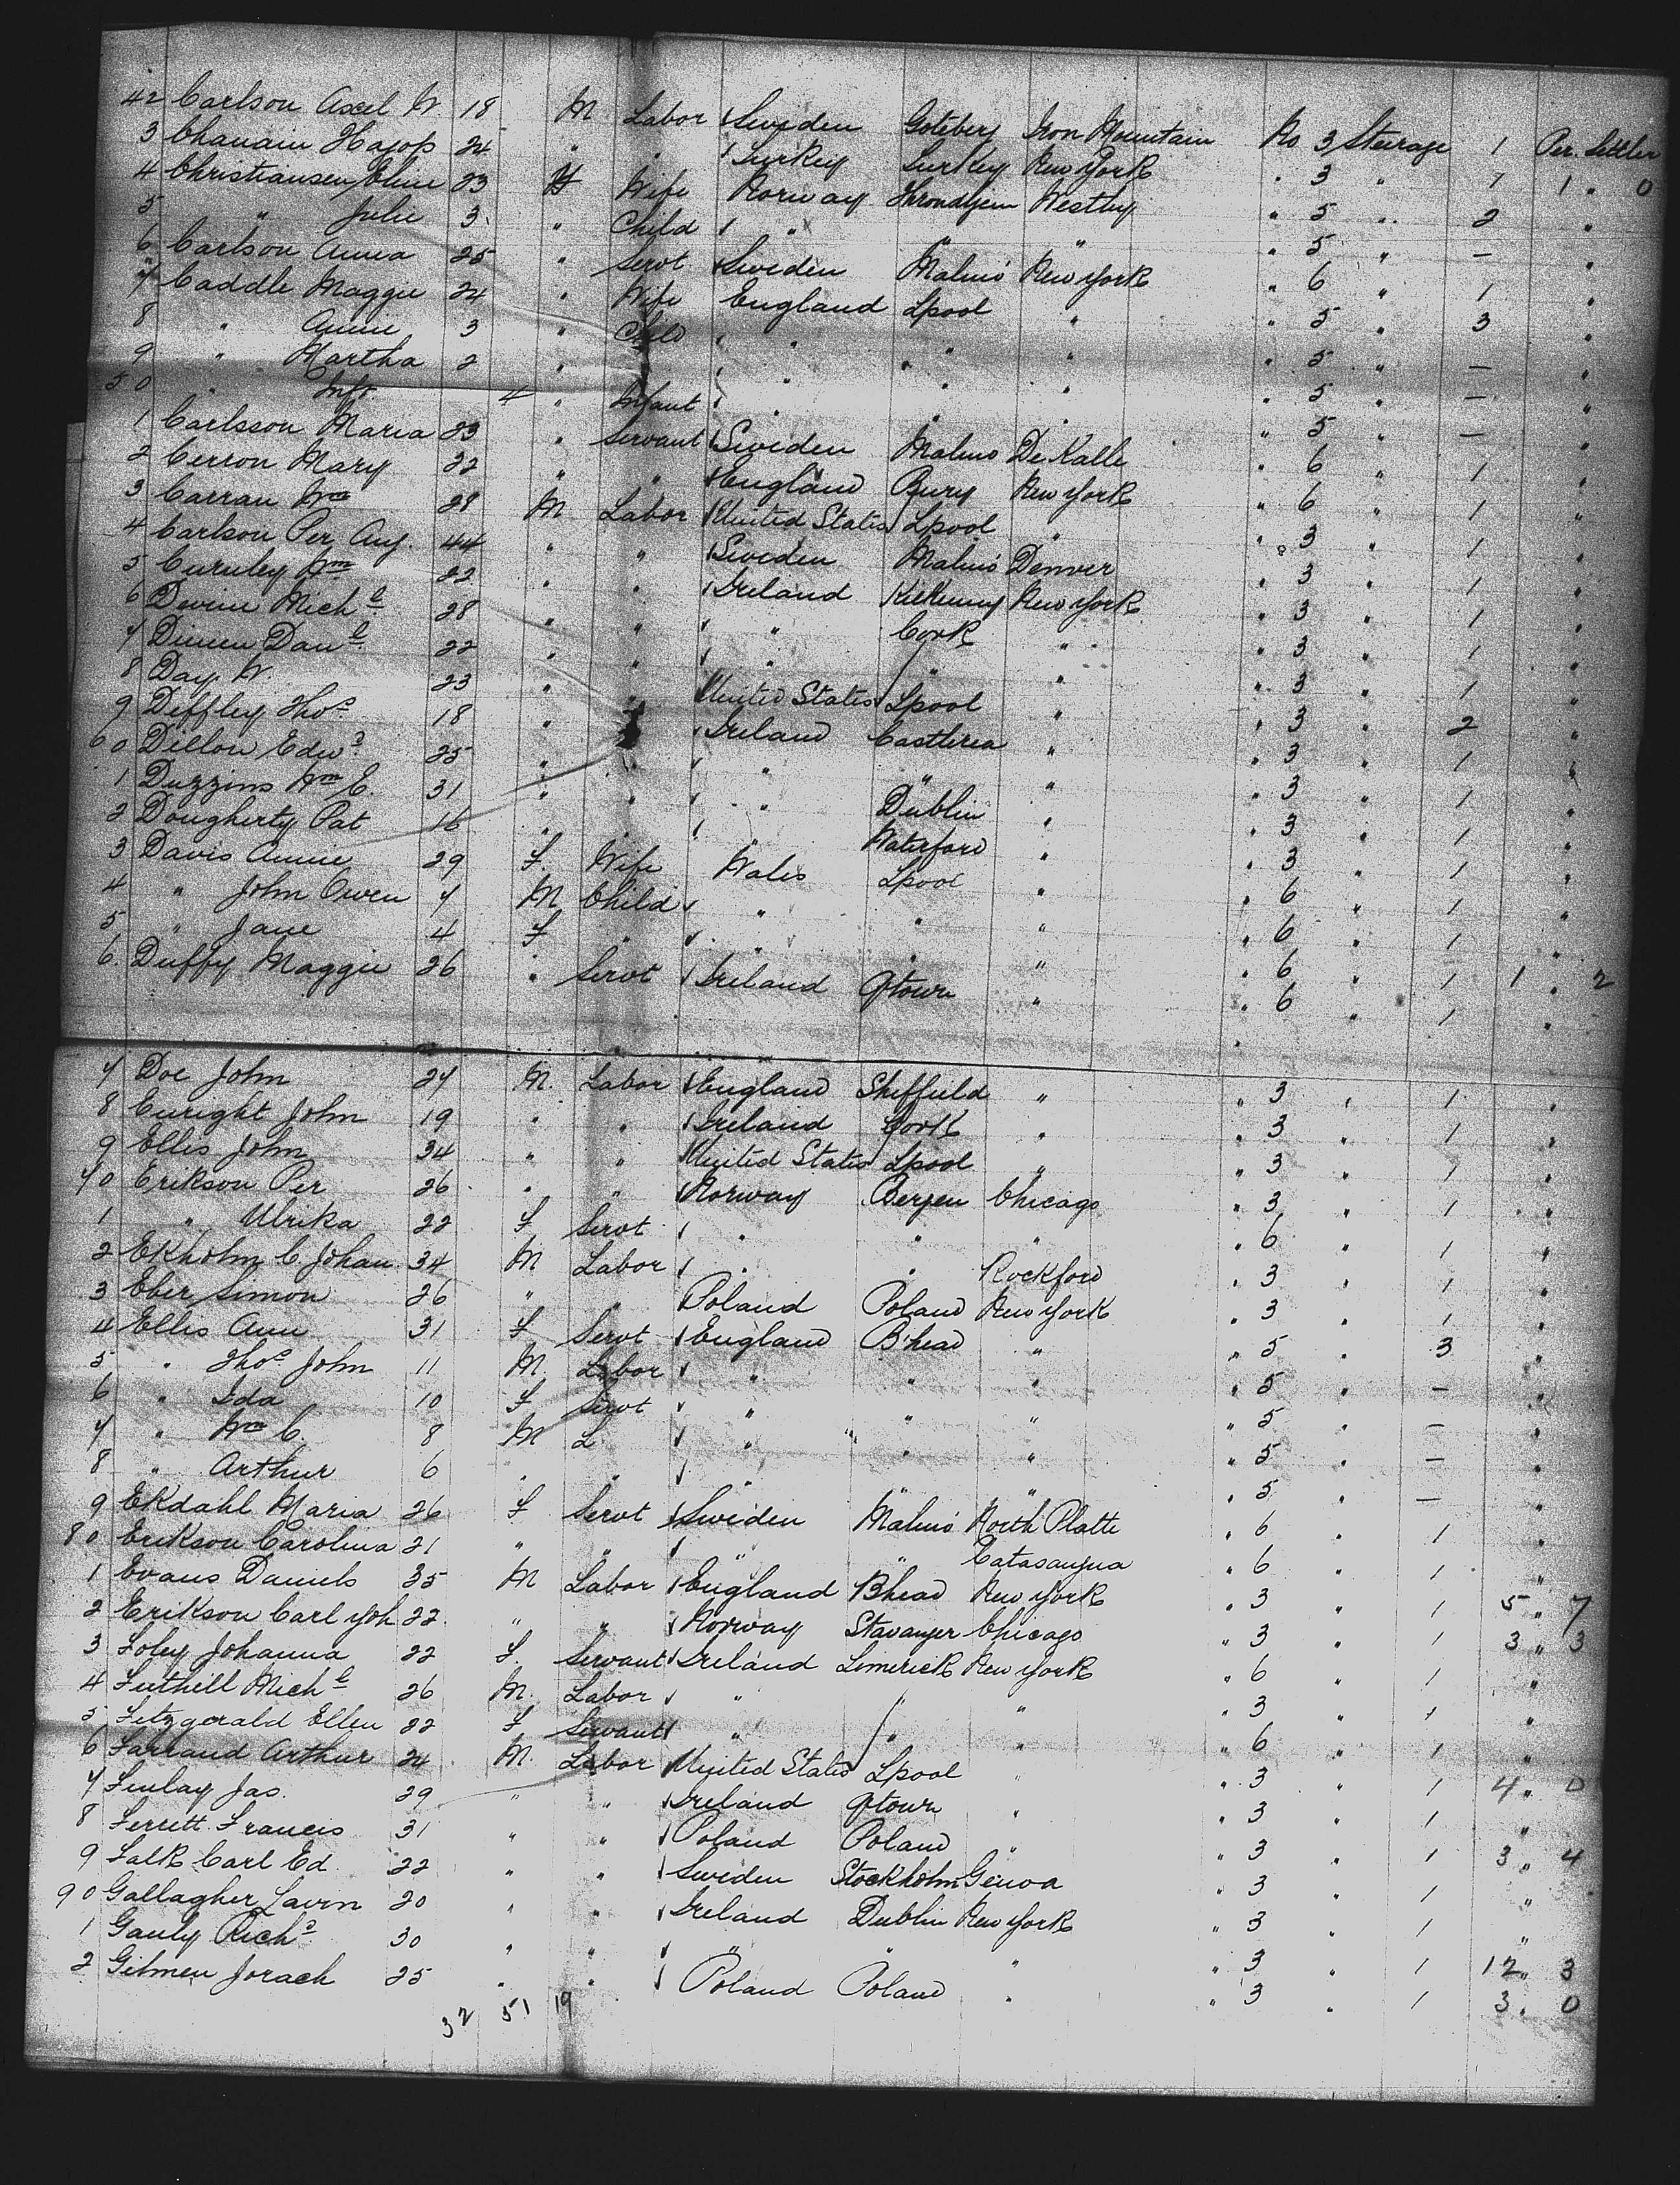 42 Carlson Axel W. 18 M Labor Sweden Goteberg Iron Mountain No 3 Steerage 1 Per. Settler
3 Chanain Hagop 24 " " Turkey Turkey New York " 3 " 1 1 " 0
4 Christiansen Eline 23 F Wife Norway Throndhjem Westby " 5 " 2 "
5 " Julie 3 " Child " " " " 5 " — "
6 Carlson Anna 25 " Servt Sweden Malmö New York " 6 " 1 "
7 Caddle Maggie 24 " Wife England Lpool " " 5 " 3 "
8 " Annie 3 " Child " " " " 5 " — "
9 " Martha 2 " " " " " " 5 " — "
50 " Inft 4 " Infant " " " " 5 " — "
1 Carlsson Maria 23 " Servant Sweden Malmo De Kalb " 6 " 1 "
2 Cerron Mary 22 " " England Bury New York " 6 " 1 "
3 Carran Wm 28 M Labor United States Lpool " " 3 " 1 "
4 Carlson Per Aug. 44 " " Sweden Malmö Denver " 3 " 1 "
5 Curuley Wm 22 " " Ireland Kilkenny New York " 3 " 1 "
6 Devine Michl 28 " " " Cork " " 3 " 1 "
7 Dineen Danl 22 " " " " " " 3 " 1 "
8 Day W. 23 " " United States Lpool " " 3 " 2 "
9 Deffley Thos 18 " " Ireland Castlerea " " 3 " 1 "
60 Dillon Edwd 25 " " " " " " 3 " 1 "
1 Duzzins Wm E. 31 " " " Dublin " " 3 " 1 "
2 Dougherty Pat 16 " " " Waterford " " 3 " 1 "
3 Davis Annie 29 F. Wife Wales Lpool " " 6 " 1 "
4 " John Owen 7 M Child " " " " 6 " 1 "
5 " Jane 4 F " " " " " 6 " 1 1 " 2
6. Duffy Maggie 26 " Servt Ireland Qtown " " 6 " 1 "
7 Doe John 27 M. Labor England Sheffield " " 3 " 1 "
8 Enright John 19 " " Ireland Cork " " 3 " 1 "
9 Ellis John 34 " " United States Lpool " " 3 " 1 "
70 Erikson Per 26 " " Norway Bergen Chicago " 3 " 1 "
1 " Ulrika 22 F Servt " " " " 6 " 1 "
2 Ekholm C Johan 34 M Labor " " Rockford " 3 " 1 "
3 Eber Simon 26 " " Poland Poland New York " 3 " 1 "
4 Ellis Ann 31 F Servt England B'head " " 5 " 3 "
5 " Thos John 11 M. Labor " " " " 5 " — "
6 " Ida 10 F Servt " " " " 5 " — "
7 " Wm C. 8 M L " " " " 5 " — "
8 " Arthur 6 " " " " " " 5 " — "
9 Ekdahl Maria 26 F Servt Sweden Malmö North Platte " 6 " 1 "
80 Erikson Carolina 21 " " " " Catasauqua " 6 " 1 "
1 Evans Daniels 35 M Labor England Bhead New York " 3 " 1 5 " 7
2 Erikson Carl Joh 22 " " Norway Stavanger Chicago " 3 " 1 3 " 3
3 Foley Johanna 22 F. Servant Ireland Limerick New York " 6 " 1 "
4 Futhill Michl 26 M. Labor " " " " 3 " 1 "
5 Fitzgerald Ellen 22 F Servant " " " " 6 " 1 "
6 Farrand Arthur 24 M. Labor United States Lpool " " 3 " 1 4 " 0
7 Finlay Jas. 29 " " Ireland Qtown " " 3 " 1 "
8 Ferrett Francis 31 " " Poland Poland " " 3 " 1 3 " 4
9 Falk Carl Ed. 22 " " Sweden Stockholm Genoa " 3 " 1 "
90 Gallagher Lavin 20 " " Ireland Dublin New York " 3 " 1 "
1 Gauly Richd 30 " " " " " " 3 " 1 12 " 3
2 Gitmen Jorach 25 " " Poland Poland " " 3 " 1 3 " 0
32 51 19